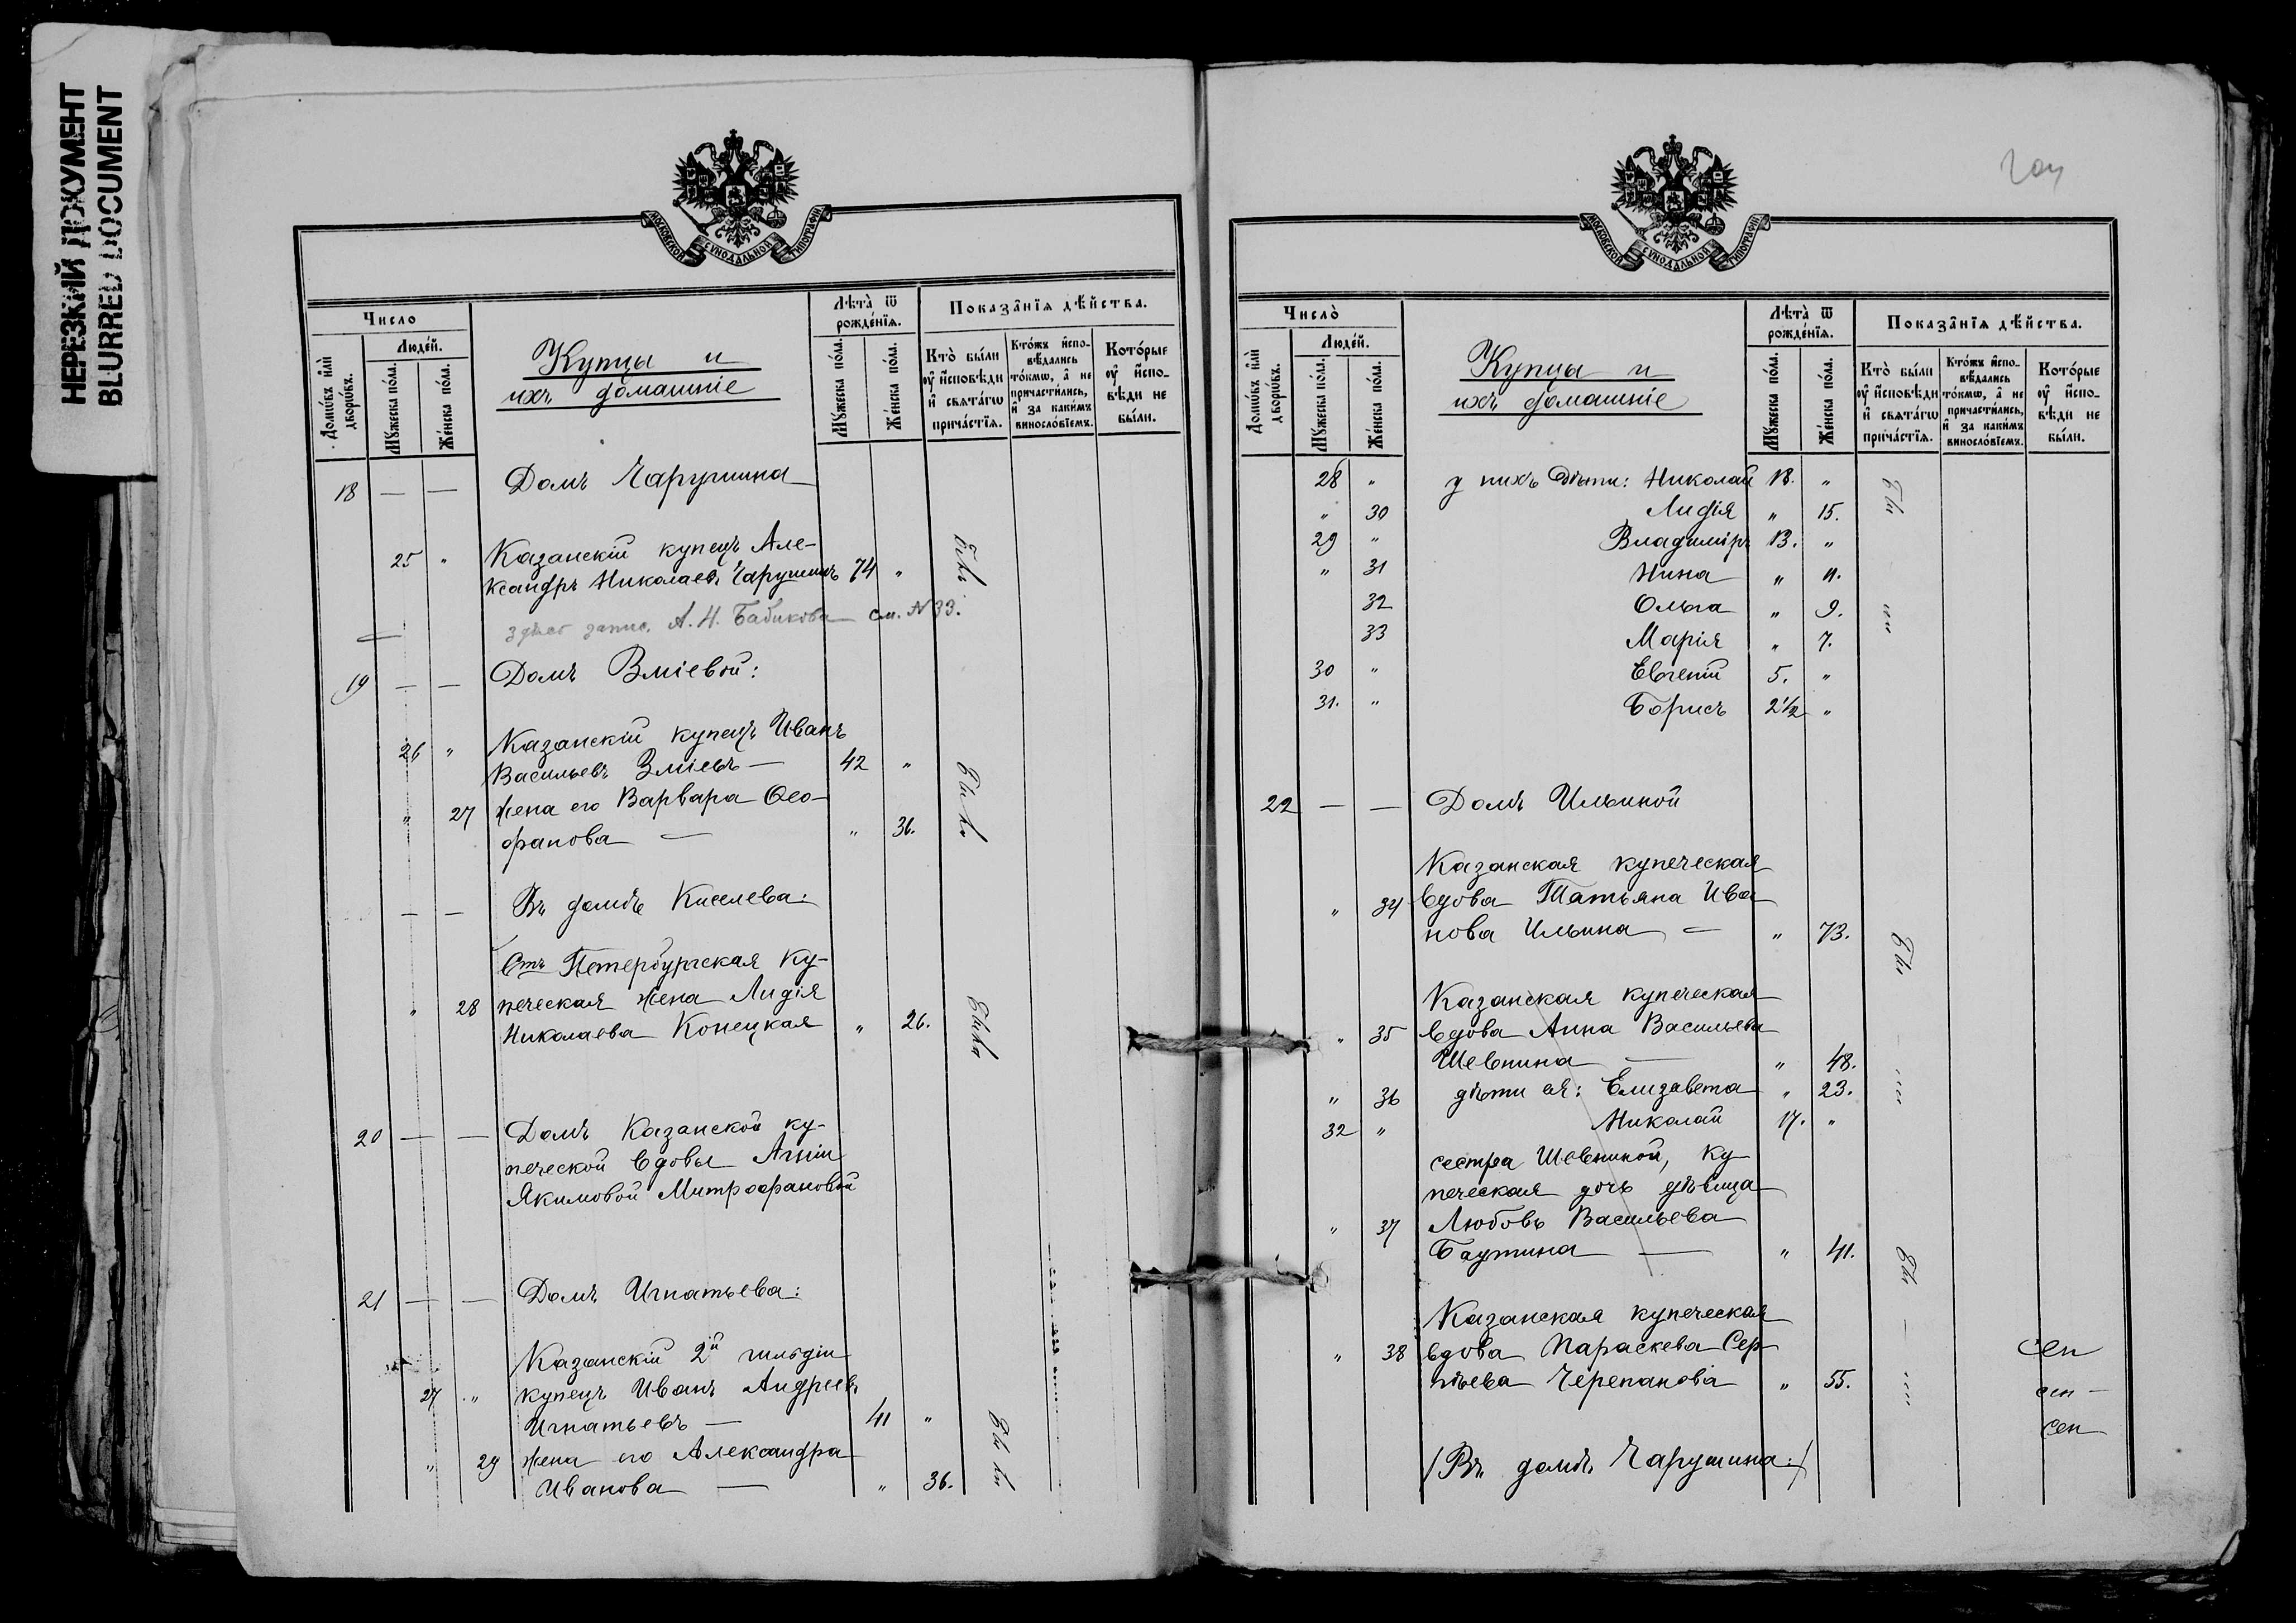 НЕРЕЗКИЙ ДОКУМЕНТ
BLURRED DOCUMENT
МОСКОВСКОЙ СУНОДАЛЬНОЙ ТИПОГРАФІИ
Число
Людей.
Домѡвъ или дворѡвъ.
Мужеска пола.
Женска пола.
Купцы и
ихъ домашніе
Лѣта ѿ рожденїѧ.
Мужеска пола.
Женска пола.
Показанїѧ дѣйства.
Кто были оу исповѣди и свѧтагѡ причастїѧ.
Ктожъ исповѣдались токмѡ, а не причастились, и за какимъ винословїемъ.
Которые оу исповѣди не были.
18 — — Домъ Чарушина
25 " Казанскій купецъ Але-
ксандръ Николаевъ Чарушинъ 74 "
здѣсь запис. А. Н. Бабикова см. № 33.
19 — — Домъ Зміевой:
26 " Казанскій купецъ Иванъ
Васильевъ Зміевъ — 42 "
" 27 жена его Варвара Ѳео-
фанова — " 36.
— — Въ домѣ Киселева:
Стъ Петербургская ку-
" 28 печеская жена Лидія
Николаева Конецкая " 26.
20 — — Домъ Казанской ку-
печеской вдовы Агніи
Якимовой Митрофановой
21 — — Домъ Игнатьева:
Казанскій 2й гильдіи
27 " купецъ Иванъ Андреевъ
Игнатьевъ — 41 "
" 29 жена его Александра
Иванова — " 36.
МОСКОВСКОЙ СУНОДАЛЬНОЙ ТИПОГРАФІИ
Число
Людей.
Домѡвъ или дворѡвъ.
Мужеска пола.
Женска пола.
Купцы и
ихъ домашніе
Лѣта ѿ рожденїѧ.
Мужеска пола.
Женска пола.
Показанїѧ дѣйства.
Кто были оу исповѣди и свѧтагѡ причастїѧ.
Ктожъ исповѣдались токмѡ, а не причастились, и за какимъ винословїемъ.
Которые оу исповѣди не были.
28 " у нихъ дѣти: Николай 18. "
" 30 Лидія " 15.
29 " Владиміръ 13. "
" 31 Нина " 11.
32 Ольга " 9.
33 Марія " 7.
30 " Евгеній 5. "
31. " Борисъ 2½ "
22 — — Домъ Ильиной
Казанская купеческая
" 34 вдова Татьяна Ива
нова Ильина — " 73.
Казанская купеческая
" 35 вдова Анна Васильева
Шевнина — " 48.
" 36 дѣти ея: Елизавета " 23.
32 " Николай 17. "
сестра Шевниной, ку-
печеская дочь дѣвица
" 37 Любовь Васильева
Баутина — " 41.
Казанская купеческая
" 38 вдова Параскева Сер
гѣева Черепанова " 55.
/Въ домѣ Чарушина:/